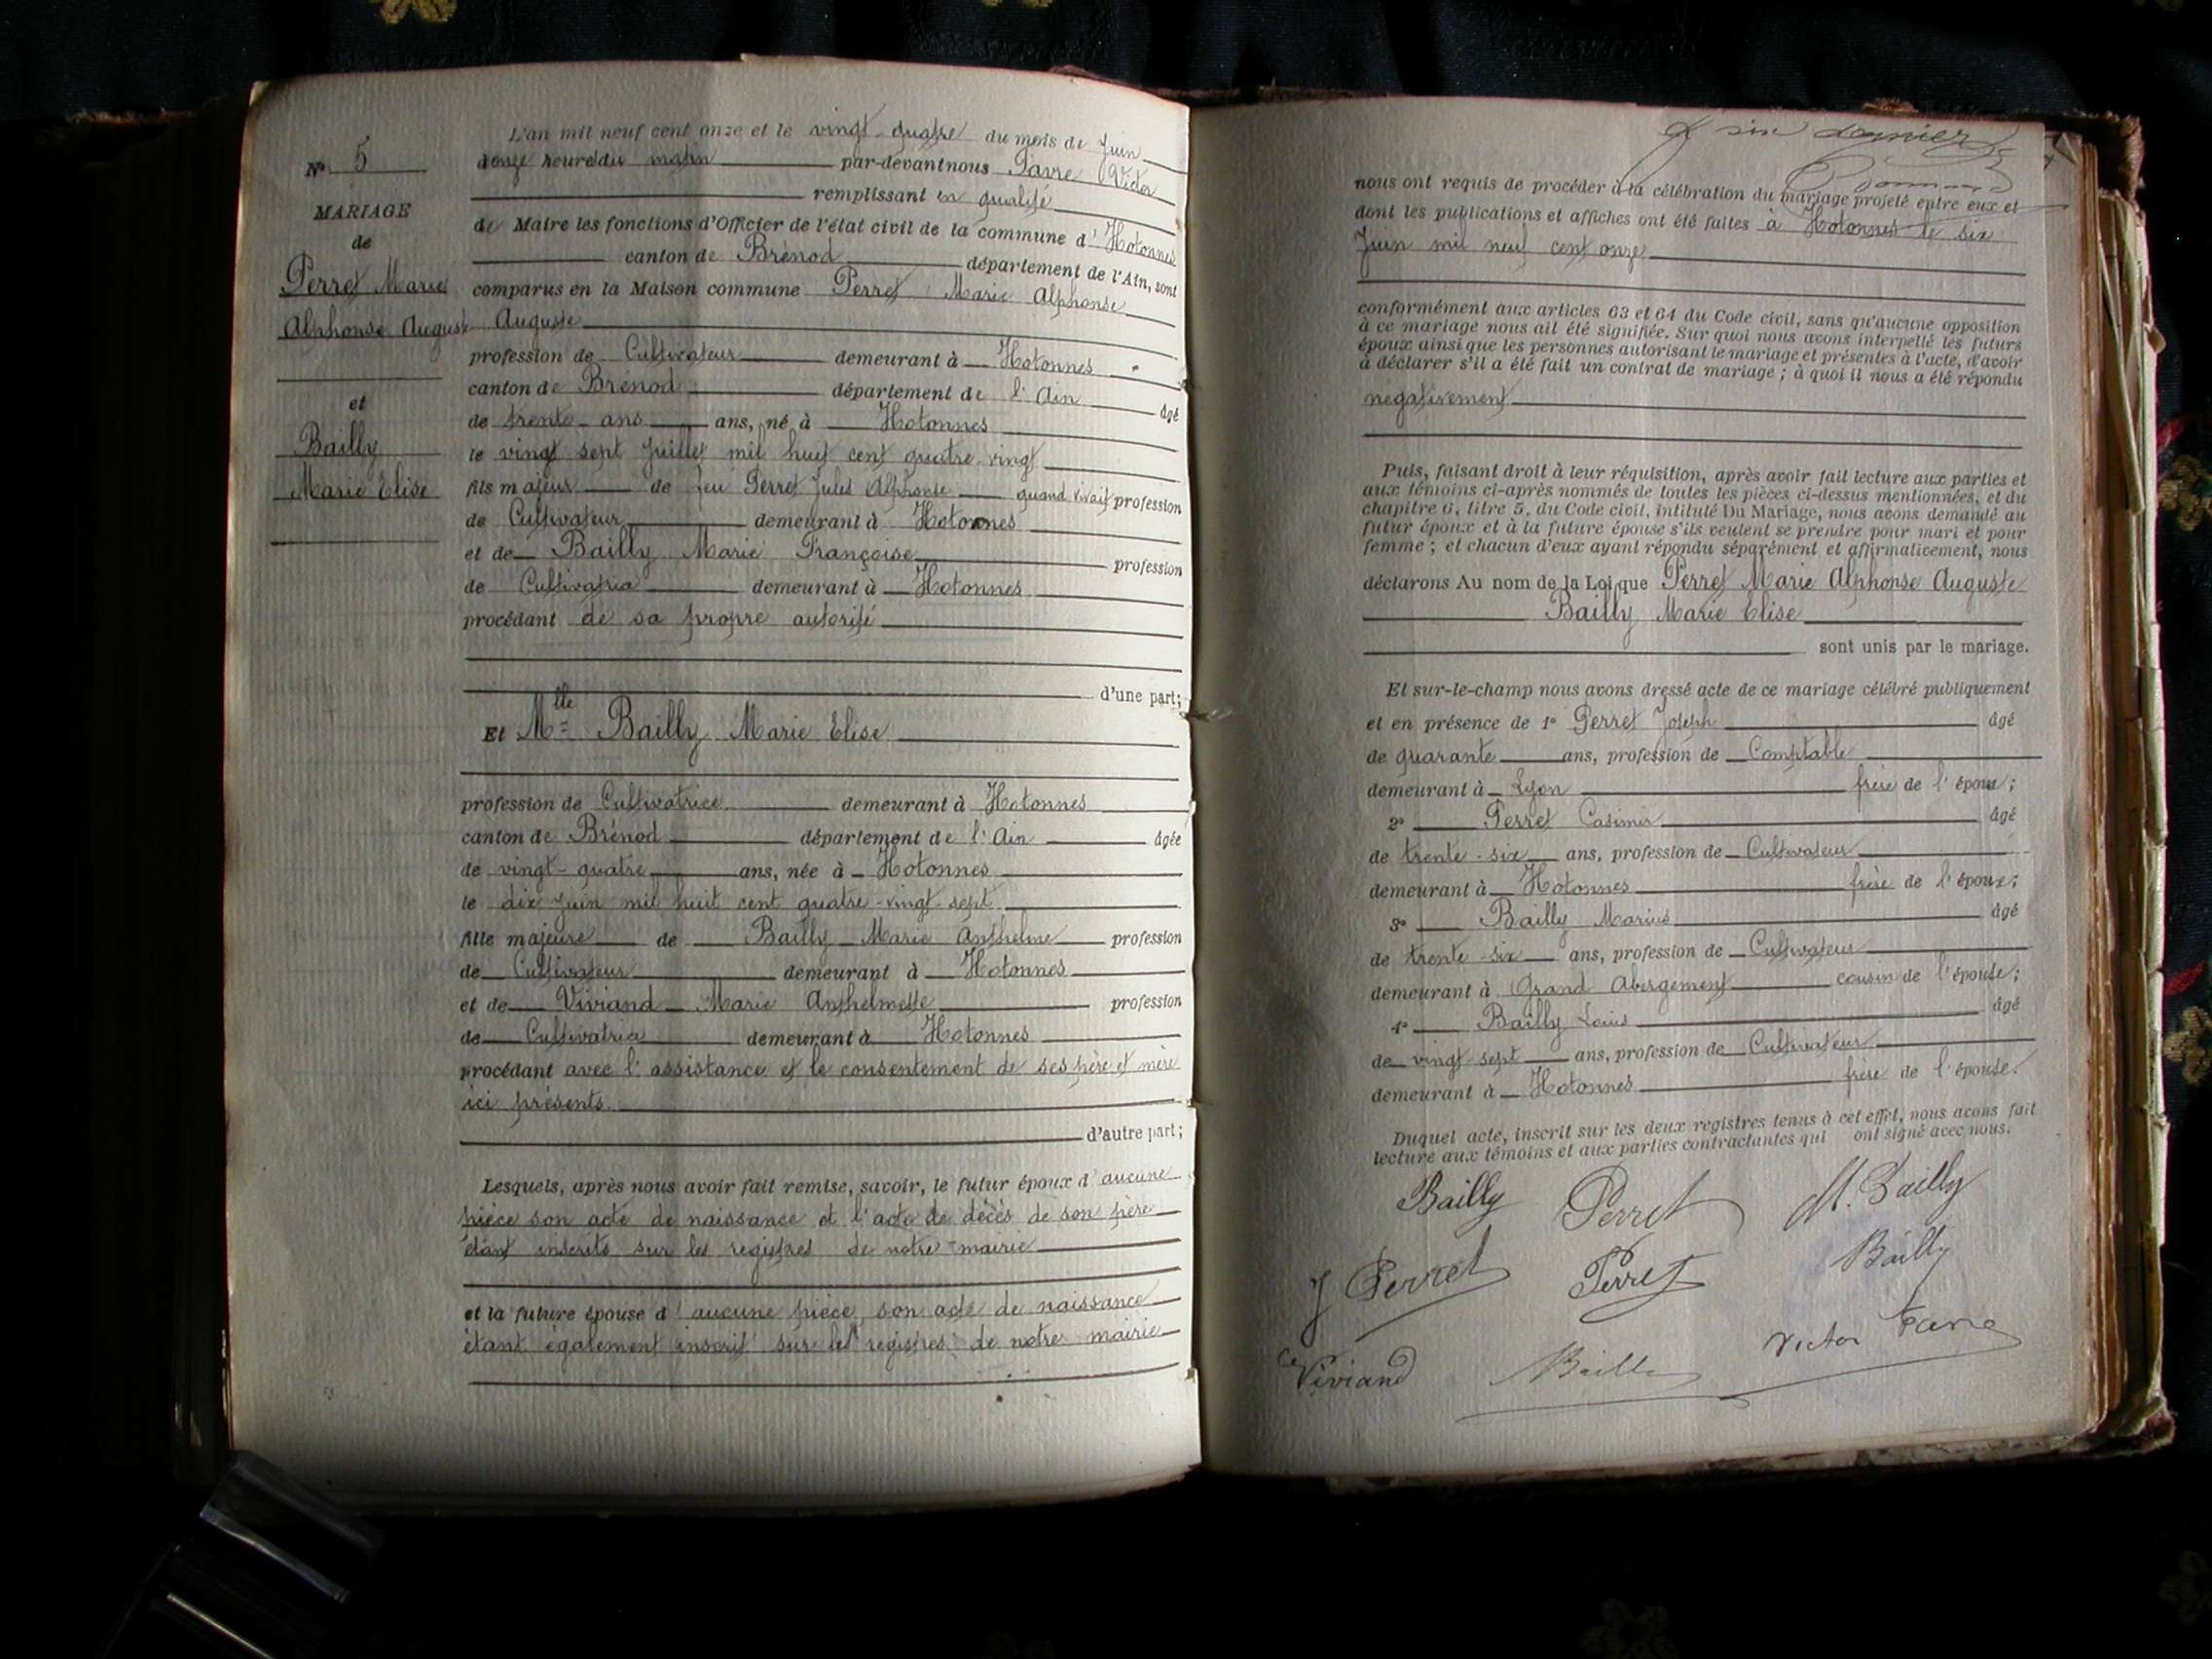 N° 5
MARIAGE
de
Perret Marie
Alphonse Auguste
et
Bailly
Marie Elise
L'an mil neuf cent onze et le vingt-quatre du mois de Juin
heure du matin par-devant nous Favre Victor
remplissant en qualité
de Maire les fonctions d'Officier de l'état civil de la commune d'Hotonnes
canton de Brénod département de l'Ain, sont
comparus en la Maison commune Perret Marie Alphonse
Auguste
profession de Cultivateur demeurant à Hotonnes
canton de Brénod département de l'Ain âgé
de trente ans ans, né à Hotonnes
le vingt sept Juillet mil huit cent quatre-vingt
fils majeur de feu Perret Jules Alphonse quand vivait profession
de Cultivateur demeurant à Hotonnes
et de Bailly Marie Françoise profession
de Cultivatrice demeurant à Hotonnes
procédant de sa propre autorité
d'une part;
Et Mlle Bailly Marie Elise
profession de Cultivatrice demeurant à Hotonnes
canton de Brénod département de l'Ain âgée
de vingt-quatre ans, née à Hotonnes
le dix Juin mil huit cent quatre-vingt-sept
fille majeure de Bailly Marie Anthelme profession
de Cultivateur demeurant à Hotonnes
et de Viviand Marie Anthelmette profession
de Cultivatrice demeurant à Hotonnes
procédant avec l'assistance et le consentement de ses père et mère
ici présents
d'autre part;
Lesquels, après nous avoir fait remise, savoir, le futur époux d'aucune
pièce son acte de naissance et l'acte de décès de son père
étant inscrits sur les registres de notre mairie
et la future épouse d'aucune pièce, son acte de naissance
étant également inscrit sur les registres de notre mairie
six dernier
nous ont requis de procéder à la célébration du mariage projeté entre eux et
dont les publications et affiches ont été faites à Hotonnes le six
Juin mil neuf cent onze
conformément aux articles 63 et 64 du Code civil, sans qu'aucune opposition
à ce mariage nous ait été signifiée. Sur quoi nous avons interpellé les futurs
époux ainsi que les personnes autorisant le mariage et présentes à l'acte, d'avoir
à déclarer s'il a été fait un contrat de mariage; à quoi il nous a été répondu
négativement
Puis, faisant droit à leur réquisition, après avoir fait lecture aux parties et
aux témoins ci-après nommés de toutes les pièces ci-dessus mentionnées, et du
chapitre 6, titre 5, du Code civil, intitulé Du Mariage, nous avons demandé au
futur époux et à la future épouse s'ils veulent se prendre pour mari et pour
femme; et chacun d'eux ayant répondu séparément et affirmativement, nous
déclarons Au nom de la Loi que Perret Marie Alphonse Auguste
Bailly Marie Elise
sont unis par le mariage.
Et sur-le-champ nous avons dressé acte de ce mariage célébré publiquement
et en présence de 1° Perret Joseph âgé
de quarante ans, profession de Comptable
demeurant à Lyon frère de l'époux;
2° Perret Casimir âgé
de trente-six ans, profession de Cultivateur
demeurant à Hotonnes frère de l'époux;
3° Bailly Marius âgé
de trente-six ans, profession de Cultivateur
demeurant à Grand Abergement cousin de l'épouse;
4° Bailly Louis âgé
de vingt sept ans, profession de Cultivateur
demeurant à Hotonnes frère de l'épouse.
Duquel acte, inscrit sur les deux registres tenus à cet effet, nous avons fait
lecture aux témoins et aux parties contractantes qui ont signé avec nous.
Bailly Perret M. Bailly
J Perret Perret Bailly
Viviand Bailly Victor Favre